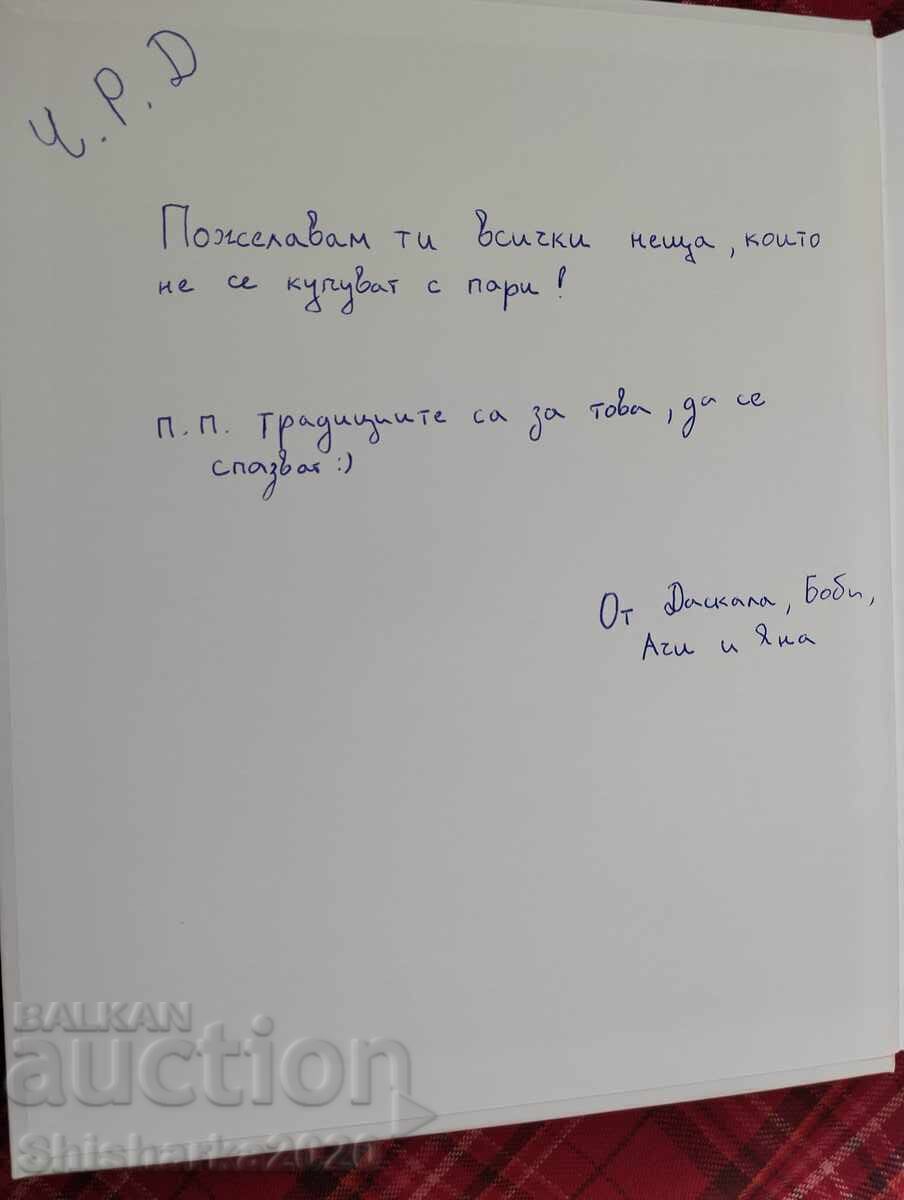 Ч.Р.Д
Пожелавам ти всички неща, които
не се купуват с пари!
П.П. Традициите са за това, да се
спазват :)
От Даскала, Боби,
Ачи и Яна
BALKAN
auction
Shisharka2020